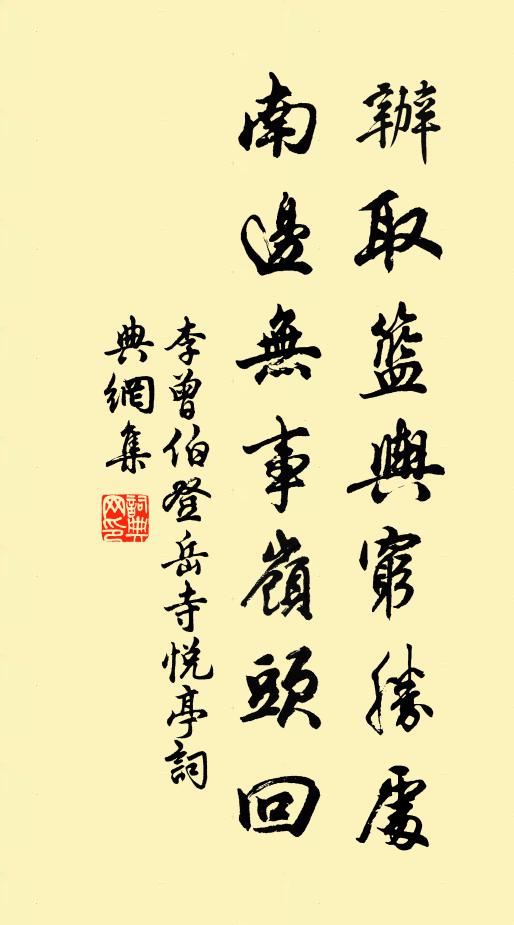 辦取籃輿窮勝處
南邊無事嶺頭回
李曾伯登岳寺悅亭詞
典網集
詞典網印